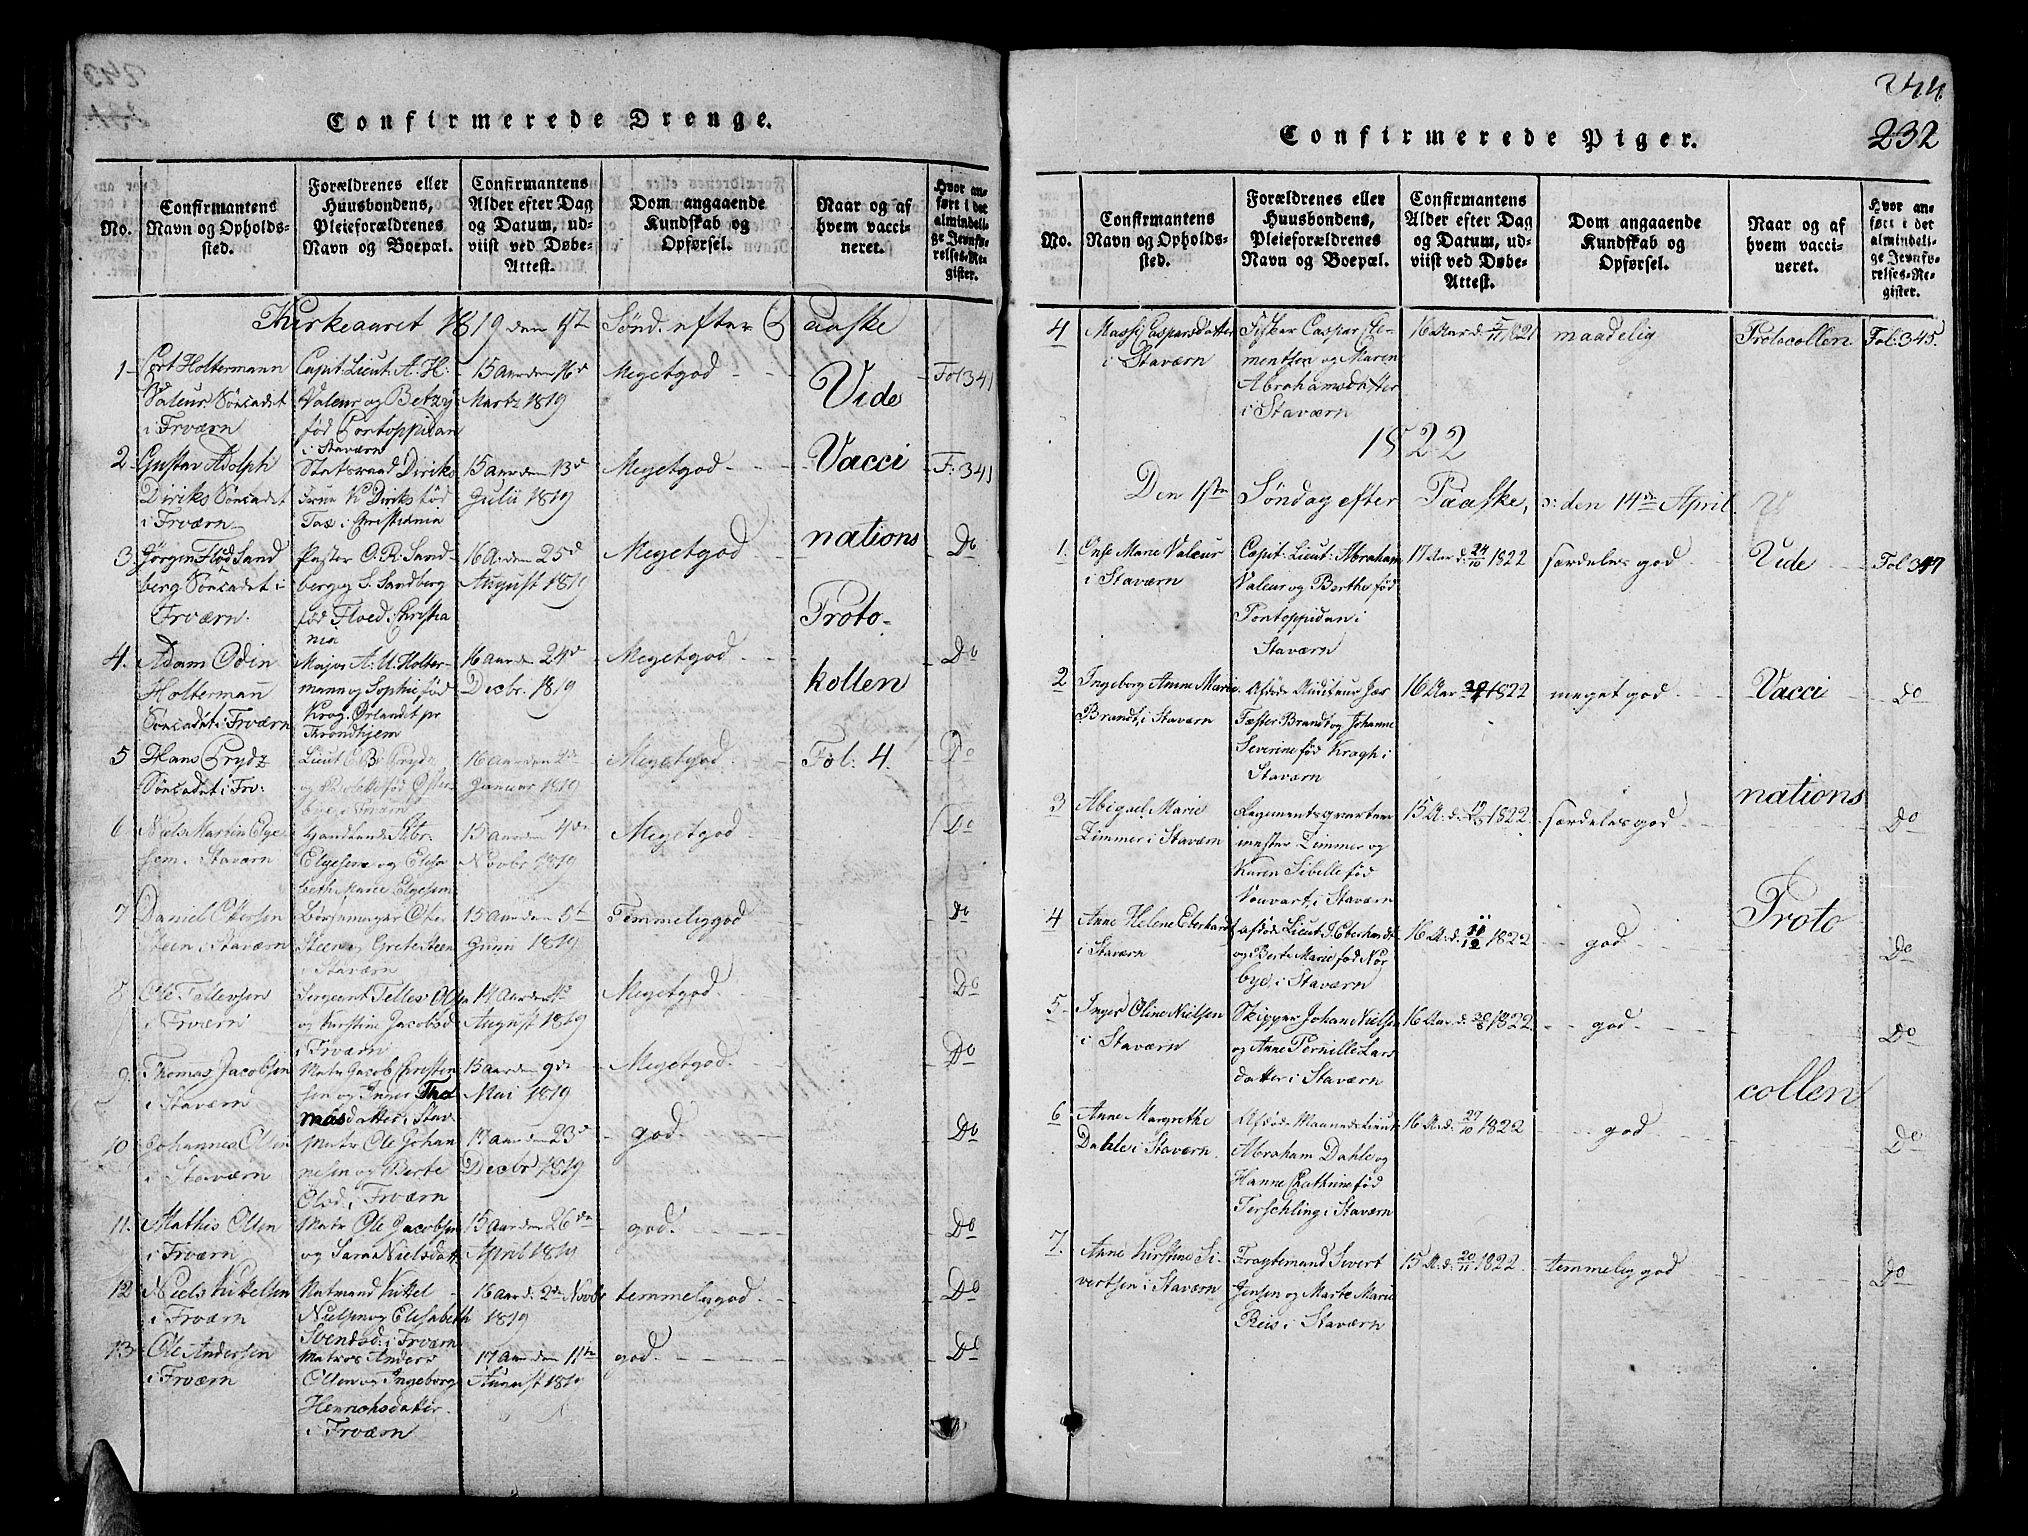 Confirmerede Drenge.
No.
Confirmantens
Navn og Opholds-
sted.
Forældrenes eller
Huusbondens,
Pleieforældrenes
Navn og Boepæl.
Confirmantens
Alder efter Dag
og Datum, ud-
viist ved Døbe-
Attest.
Dom angaaende
Kundskab og
Opførsel.
Naar og af
hvem vacci-
neret.
Hvor an-
ført i det
almindeli-
ge Jevnfø-
relses-Re-
gister.
Kirkeaaret 1819 den 1ste Sønd. efter Paaske
1
Cort Holtermann
Valeur. Søcadet
i Frværn
Capit. Lieut. A. H:
Valeur og Betzy
fød Pontoppidan
i Staværn
15 Aar den 16d
Martz 1819
Megetgod
Vide
Fol 341
2
Gustav Adolph
Diriks Søcadet
i Frværn
Statsraad Diriks
Frue K Diriks fød
Tax i Christiania
15 Aar den 13d
Julii 1819
Megetgod
Vacci
F: 341
3
Jørgin Flod Sand
berg Søcadet i
Frværn.
Paster O. R. Sand-
berg og S. Sandberg
fød Floed. Christia
nia
16 A. den 25d
August 1819
Megetgod
nations
Do
4.
Adam Odin
Holtermañ
Søcadet i Frværn
Major A. U. Holter-
mann og Sophie fød
Krog. Ørlandet pr
Trondhjem
16 Aar den 24d
Decbr. 1819
Megetgod
Proto-
kollen
Do
5
Hans Prydz
Søcadet i Fr:
Lieut
16 Aar den 2de
Januar 1819
Megetgod
Fol. 4.
Do
6
Niels Martin Elge
sem. Staværn
Elgesem og Elisa
beth Marie Elgesem
15 Aar den 4de
Novbr 1819
Megetgod
Do
7
Daniel Ottersen
Steen i Staværn
Steen og Grete Steen
i Staværn
15 Aar den 5t
Juni 1819
Temmeliggod
Do
8
Ole Tellefsen
i Frværn
Sergeant Tellef Olsen
og Kirstine Jacobsd
i Frværn
14 Aar den 4d
August 1819
Megetgod
Do
9
Thomas Jacobsen
i Staværn
Matr Jacob Christen
sen og Inger Tho
masdatter i Stav-
15 Aar den 9de
Mai 1819
Megetgod
Do
10
Johannes Olsen
i Staværn
Matr Ole Johan
nesen og Berte
Olsd. i Frværn
17 Aar den 23d
Decbr 1819
god.
Do
11.
Mathis Olsen
i Frværn
Matr Ole Jacobsen
og Sara Nielsdatt
15 Aar den 26de
April 1819
god.
Do
12
Niels Kittelsen
i Frværn
Matmand Kittel
Nielsen og Elisabeth
Svendsd: i Frværn
16 Aar d. 2de Novbr
1819
temmeligod.
Do
13
Ole Andersen
i Frværn
Matros Anders
Olsen og Ingeborg
Henrichsdatter.
i Frværn
17 Aar den 11te
August 1819
god.
Do
244
232
Confirmerede Piger.
No.
Confirmantens
Navn og Opholds-
sted.
Forældrenes eller
Huusbondens,
Pleieforældrenes
Navn og Boepæl.
Confirmantens
Alder efter Dag
og Datum, ud-
viist ved Døbe-
Attest.
Dom angaaende
Kundskab og
Opførsel.
Naar og af
hvem vacci-
neret.
Hvor an-
ført i det
almindeli-
ge Jevnfø-
relses-Re-
gister.
4
Massi Caspersdatter
i Staværn
Fisker Casper Cle-
mentsen og Maren
Abrahamsdatter
i Staværn
16 Aar d. 5/11 1821
maadelig
Protocollen
Fol: 345.
1822
Den 1ste Søndag efter Paaske, o: den 14de April
1.
Marie Valeur
i Staværn
Capit: Lieut: Abraham
Valeur og Berthe fød
Pontoppidan i
Staværn
17 Aar d. 24/10 1822
særdeles god
Vide
Fol 347
2
Ingeborg Anne Marie
Brandt, i Staværn
Afdøde Auditeur Jas
Fæster Brandt og Johanne
Severine fød Kragh i
Staværn
16 Aar 1822
meget god
Vacci
Do
3
Abigael Marie
Zimmer i Staværn
Regimentsqvarteer
mester Zimmer og
Karen Sibelle fød
i Staværn
15 A. d. 1822
særdeles god
nations
Do
4
Anne Helene Eberhardt
i Staværn
Afdøde Lieut I Eberhardt
og Berte Marie fød Nor
bye, i Staværn
16 A. d. 11/12 1822
god
Proto
Do
5
Inger Oline Nielsen
i Staværn
Skipper Johan Nielsen
og Anne Pernille Lars
datter i Staværn
16 Aar d. 1822
god
collen
Do
6
Anne Margrethe
Dahle i Staværn
Afdøde Maanedslieut
Abraham Dahle og
Hanne Cathrine fød
Terschling i Staværn
16 A. d. 27/10 1822
god
Do
7.
Anne Kirstine Si
vertsen i Staværn
Fragtemand Sivert
Jensen og Marte Marie
Reis i Staværn
15 A. d. 20/11 1822.
temmelig god
Do